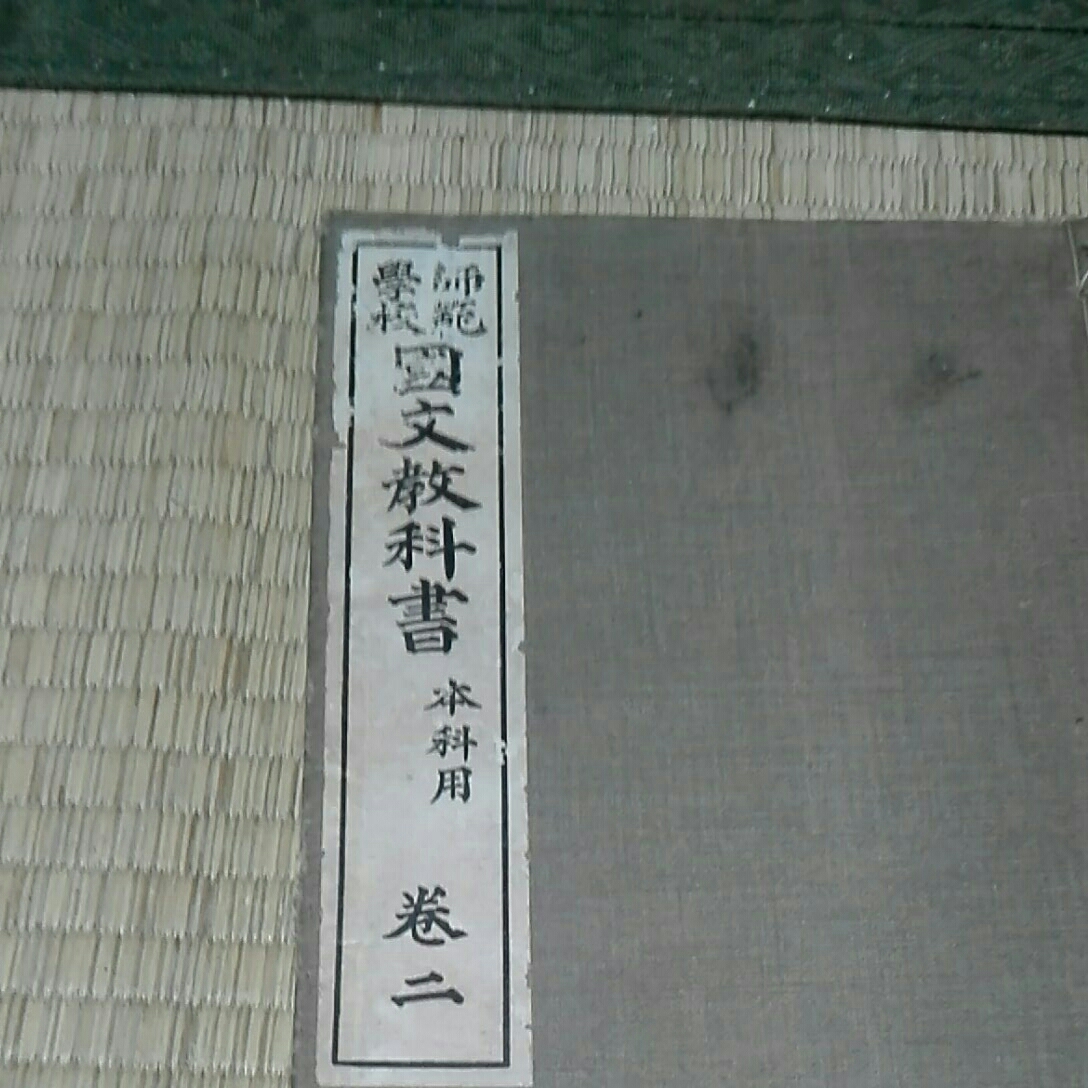 師範
學校
國文教科書
本科用
卷二